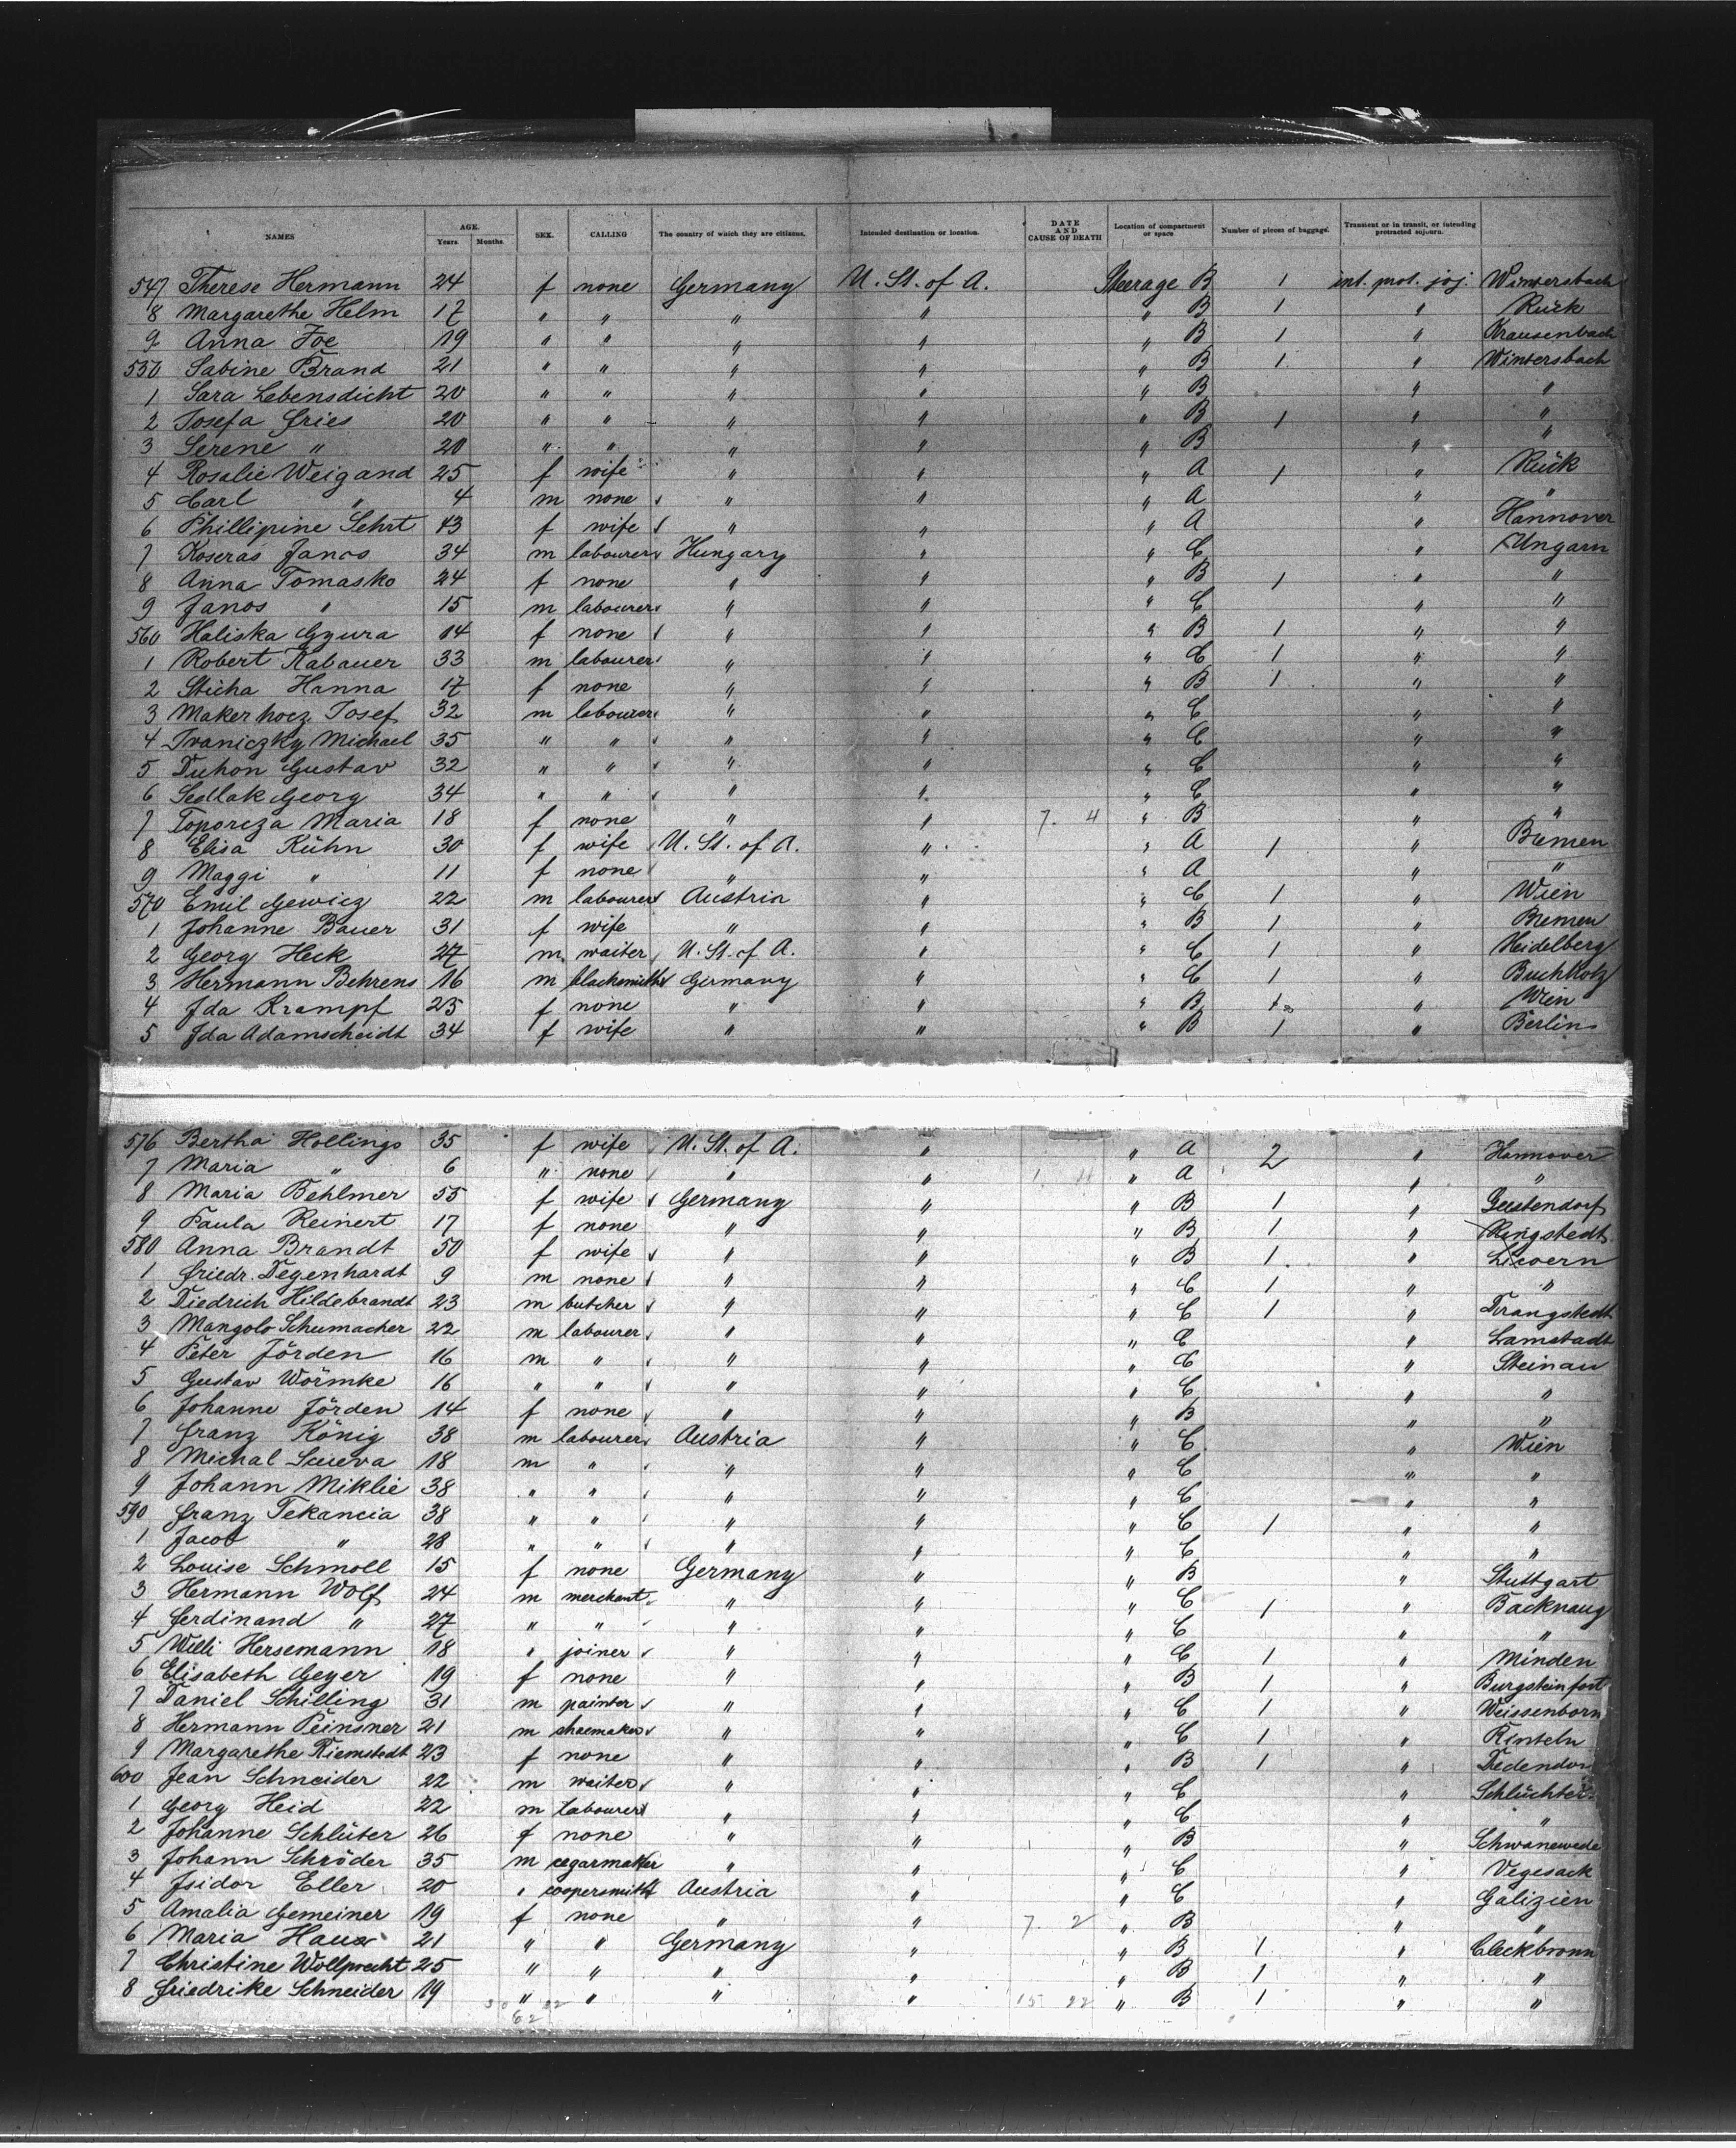 NAMES AGE. Years. Months. SEX. CALLING The country of which they are citizens. Intended destination or location. DATE AND CAUSE OF DEATH Location of compartment or space Number of pieces of baggage. Transient or in transit, or intending protracted sojourn.
547 Therese Hermann 24 f none Germany U. St. of A. Steerage B 1 int. prot. soj. Wintersbach
8 Margarethe Helm 17 " " " " " B 1 " Rück
9 Anna Joe 19 " " " " " B 1 " Krausenbach
550 Sabine Brand 21 " " " " " B 1 " Wintersbach
1 Sara Lebensdicht 20 " " " " " B " "
2 Josefa Fries 20 " " " " " B 1 " "
3 Serene " 20 " " " " " B " "
4 Rosalie Weigand 25 f wife " " " A 1 " Rück
5 Carl " 4 m none " " " A " "
6 Phillipine Sehrt 43 f wife " " " A " Hannover
7 Koseras Janos 34 m labourer Hungary " " C " Ungarn
8 Anna Tomasko 24 f none " " " B 1 " "
9 Janos " 15 m labourer " " " C " "
560 Haliska Gyura 14 f none " " " B 1 " "
1 Robert Kabauer 33 m labourer " " " C 1 " "
2 Sticha Hanna 17 f none " " " B 1 " "
3 Makerhocz Josef 32 m labourer " " " C " "
4 Ivaniczky Michael 35 " " " " " C " "
5 Duhon Gustav 32 " " " " " C " "
6 Sedlak Georg 34 " " " " " C " "
7 Toporcza Maria 18 f none " " 7. 4 " B " "
8 Elisa Kühn 30 f wife U. St. of A. " " A 1 " Bremen
9 Maggi " 11 f none " " " A " "
570 Emil Gewicz 22 m labourer Austria " " C 1 " Wien
1 Johanne Bauer 31 f wife " " " B 1 " Bremen
2 Georg Heck 27 m. waiter U. St. of A. " " C 1 " Heidelberg
3 Hermann Behrens 16 m blacksmith Germany " " C 1 " Buchholz
4 Ida Krampf 23 f none " " " B 1 " Wien
5 Ida Adamscheidt 34 f wife " " " B 1 " Berlin
576 Bertha Hollings 35 f wife U. St. of A. " " A 2 " Hannover
7 Maria " 6 " none " " " A " "
8 Maria Behlmer 55 f wife Germany " " B 1 " Geestendorf
9 Paula Reinert 17 f none " " " B 1 " Ringstedt
580 Anna Brandt 50 f wife " " " B 1 "
1 Friedr. Degenhardt 9 m none " " " C 1 " "
2 Diedrich Hildebrandt 23 m butcher " " " C 1 " Drangstedt
3 Mangolo Schumacher 22 m labourer " " " C " Lamstadt
4 Peter Jörden 16 m " " " " C " Steinau
5 Gustav Wörmke 16 " " " " " C " "
6 Johanne Jörden 14 f none " " " B " "
7 Franz König 38 m labourer Austria " " C " Wien
8 Michal 18 m " " " " C " "
9 Johann Miklic 38 " " " " " C " "
590 Franz Tekancia 38 " " " " " C 1 " "
1 Jacob " 28 " " " " " C " "
2 Louise Schmoll 15 f none Germany " " B " Stuttgart
3 Hermann Wolf 24 m merchant " " " C 1 " Backnang
4 Ferdinand " 27 " " " " " C " "
5 Willi Hersemann 18 " joiner " " " C 1 " Minden
6 Elisabeth Geyer 19 f none " " " B 1 " Burgsteinfort
7 Daniel Schilling 31 m painter " " " C 1 " Weissenborn
8 Hermann Peinsner 21 m shoemaker " " " C 1 " Rinteln
9 Margarethe Tiemstedt 23 f none " " " B 1 " Dedendor
600 Jean Schneider 22 m waiter " " " C " Schlüchter
1 Georg Heid 22 m labourer " " " C " "
2 Johanne Schlüter 26 f none " " " B " Schwanewede
3 Johann Schröder 35 m cegarmaker " " " C " Vegesack
4 Isidor Eller 20 " coopersmith Austria " " C " Galizien
5 Amalia Gemeiner 19 f none " " 7. 2 " B " "
6 Maria Haux 21 " " Germany " " B 1 " Cleebronn
7 Christine Wollprecht 25 " " " " " B 1 " "
8 Friedrike Schneider 19 " " " " 15 22 " B 1 " "
62